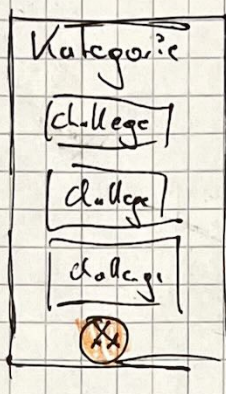 Kategorie
Challege
Challege
Challenge